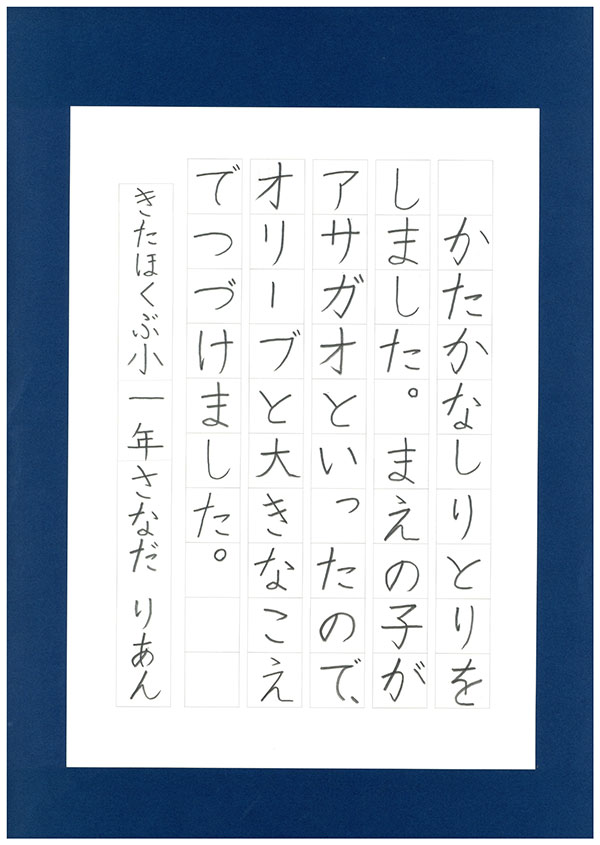 かたかなしりとりを
しました。まえの子が
アサガオといったので、
オリーブと大きなこえ
でつづけました。
きたほくぶ小一年さなだ りあん